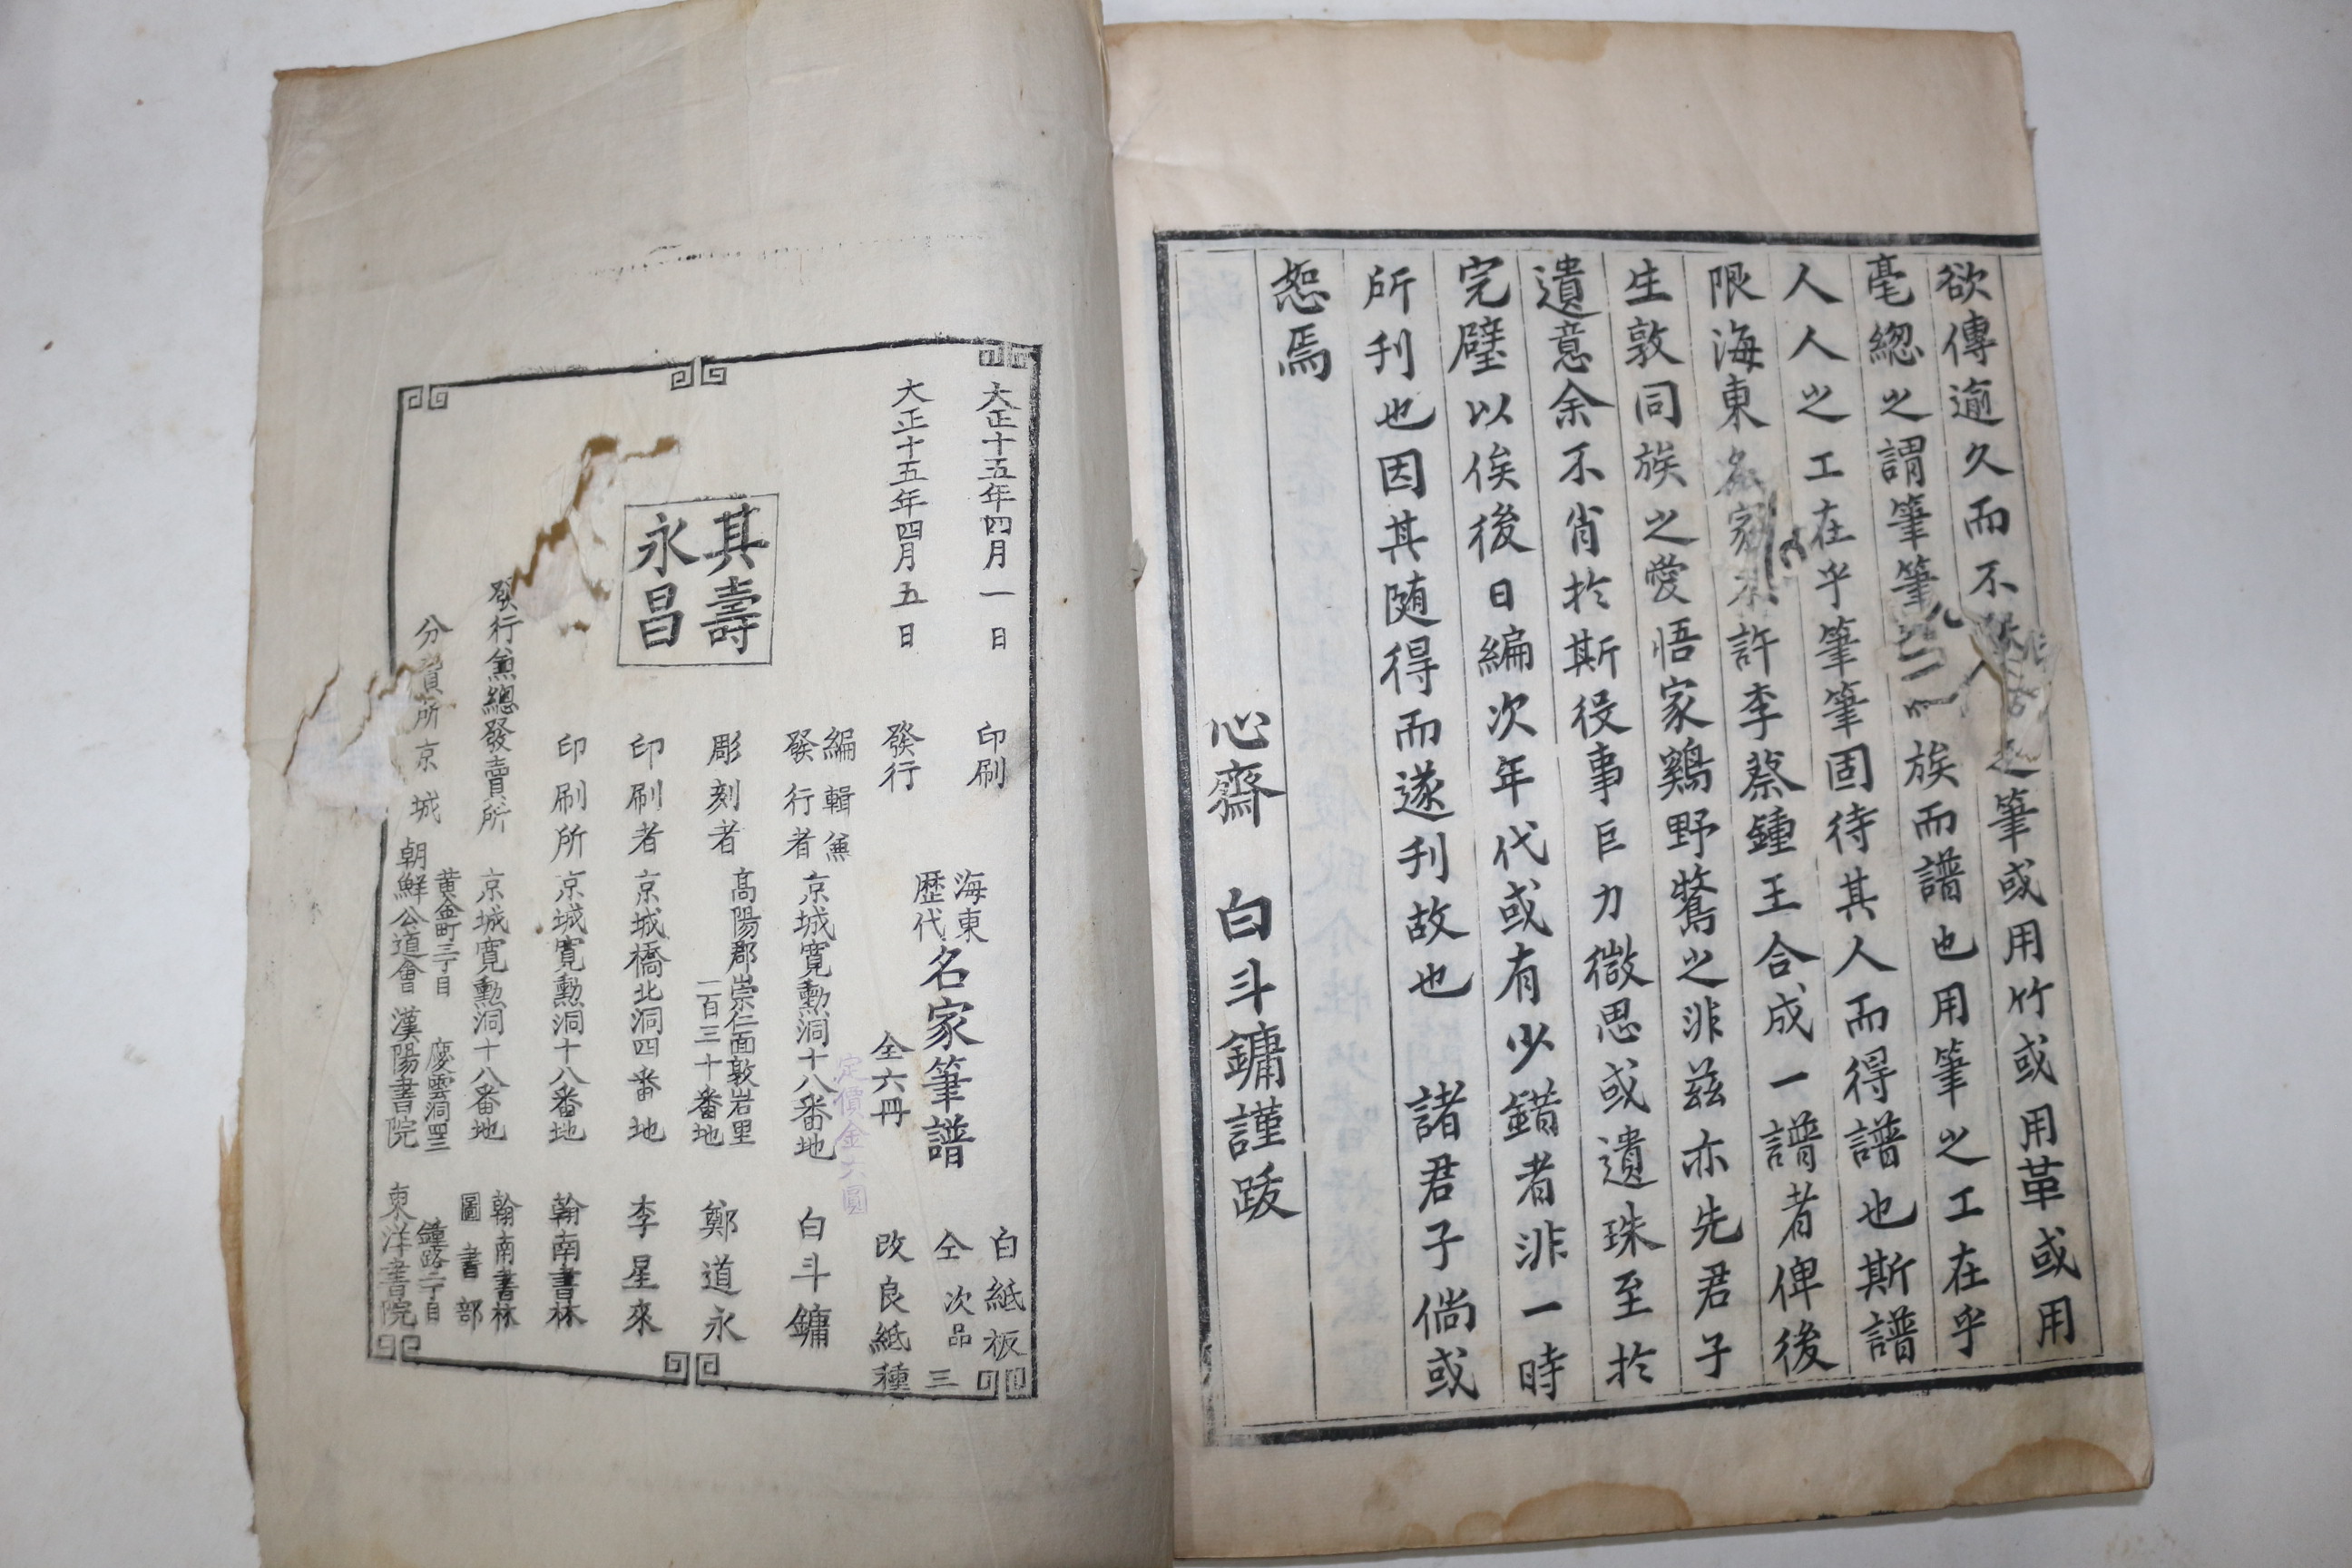 欲傳逾久而不之筆或用竹或用革或用
毫緫之謂筆筆一族而譜也用筆之工在乎
人人之工在乎筆筆固待其人而得譜也斯譜
限海東名家不許李蔡鍾王合成一譜者俾後
生敦同族之愛悟家鷄野鶩之非兹亦先君子
遺意余不肖於斯役事巨力微思或遺珠至於
完璧以俟後日編次年代或有少錯者非一時
所刊也因其随得而遂刊故也 諸君子倘或
恕焉
心齋 白斗鏞謹跋
大正十五年四月一日 印刷
大正十五年四月五日 發行
海東
歷代
名家筆譜
全六冊
定價金六圓
白紙板
仝 次品 三
改良紙種
其壽
永昌
編輯兼
發行者 京城寬勳洞十八番地 白斗鏞
彫刻者 高陽郡崇仁面敦岩里
二百三十番地 鄭道永
印刷者 京城橋北洞四番地 李星來
印刷所 京城寬勳洞十八番地 翰南書林
發行兼總發賣所 京城寬勳洞十八番地 翰南書林
圖書部
分賣所 京城
黄金町三丁目 朝鮮公道會
慶雲洞 漢陽書院
鍾路二丁目 東洋書院